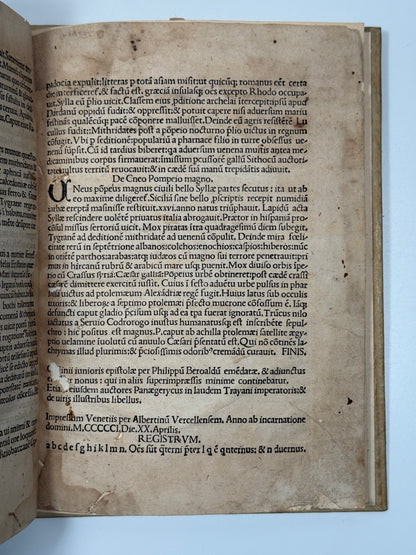 padocia expulit: litteras p totā asiam misit: ut quicūq; romanus eēt certa
die interficeret̄: & factū est. græciā insulasq; oēs excepto Rhodo occupa
uit. Sylla eū p̄lio uicit. Classem eius p̄ditione archelai itercepit: ipsū apud
Dardanū oppidū fudit: & oppressit: & potuit capere nisi aduersum mariū
festinās: qualēcūq; pacē cōponere maluisset. Deinde eū ageris resistētē Lu
cullus fudit: Mithridates post a pōpeio nocturno p̄lio uictus in regnum
cōfugit. Vbi p seditionē populariū a pharnace filio in turre obsessus ue
nenū sūpsit. Id cū tardius biberet: qa aduersum uenena multis antea me
dicaminibus corpus firmauerat: īmissum pcussorē gallū Sithocū auctori-
tate uultus territū reuocauit: & in cæde sua manū trepidātis adiuuit.
De Cneo Pompeio magno.
Neus pōpeius magnus ciuili bello Syllæ partes secutus: ita ut ab
eo maxime diligeret̄. Siciliā sine bello pscriptis recepit numidiā
ab hiarba Masinissæ restituit. xxvi. annos natus triumphauit. Lapidū actā
Syllæ rescindere uolētē priuatus italia abrogauit. Prætor in hispania pro
consul missus sertoriū uicit. Mox piratas itra quadragesimū diem subegit.
Tygranē ad deditionē mithridatē ad uenenū cōpulit. Deinde mira fœli
citate rerū in septētrionē albanos: colchos: eniochos: caspios: hiberos: nūc
in orientē parthos: arabas: atq; iudæos cū magno sui terrore penetrauit: pri
mus in hircanū rubrū & arabicū mare usq; puenit. Mox diuiso orbis ipe-
rio cū Crassus syriā Cæsar galliā: Pōpeius urbē obtineret: post cædē crassi
Cæsarē dimittere exercitū iussit. Cuius ī festo aduētu urbe pulsus in phar
salia uictus ad ptolemæum Alexādriæ regē fugit. Huius latus sub occulis
uxoris: & liberoꝝ a septimo ptolemæi p̄fecto mucrone cōfossum ē. Iam
defuncti caput gladio p̄cisum usq; ad ea tpa fuerat ignoratū. Trūcus nilo
iactatus a Seruio Codrorogo inustus humanatusq; est inscribēte sepul-
chro: hic positus est magnus. P. caput ab achilla ptolemæi satellite ægy-
ptio uelamine inuolutum cum annulo Cæsari p̄sentatū est. Qui nō cōtinēs la-
chrymas illud plurimis: & p̄ciosissimis odoribꝰ cremādū curauit. FINIS.
Plinii iunioris epistolæ per Philippū Beroaldū emēdatæ. & adiunctus
liber nonus: qui in aliis superimpræssis minime continebatur.
Etiā eiusdem auctores Panægericus in laudem Traiani imperatoris: &
de uiris illustribus libellus.
Impressum Venetiis per Albertinū Vercellensem. Anno ab incarnatione
domini. M.CCCCCI. Die. XX. Aprilis.
REGISTRVM.
a b c d e f g h i k l m n. Oēs sūt q̄terni p̄ter l q ē qnternus: & n duernus.